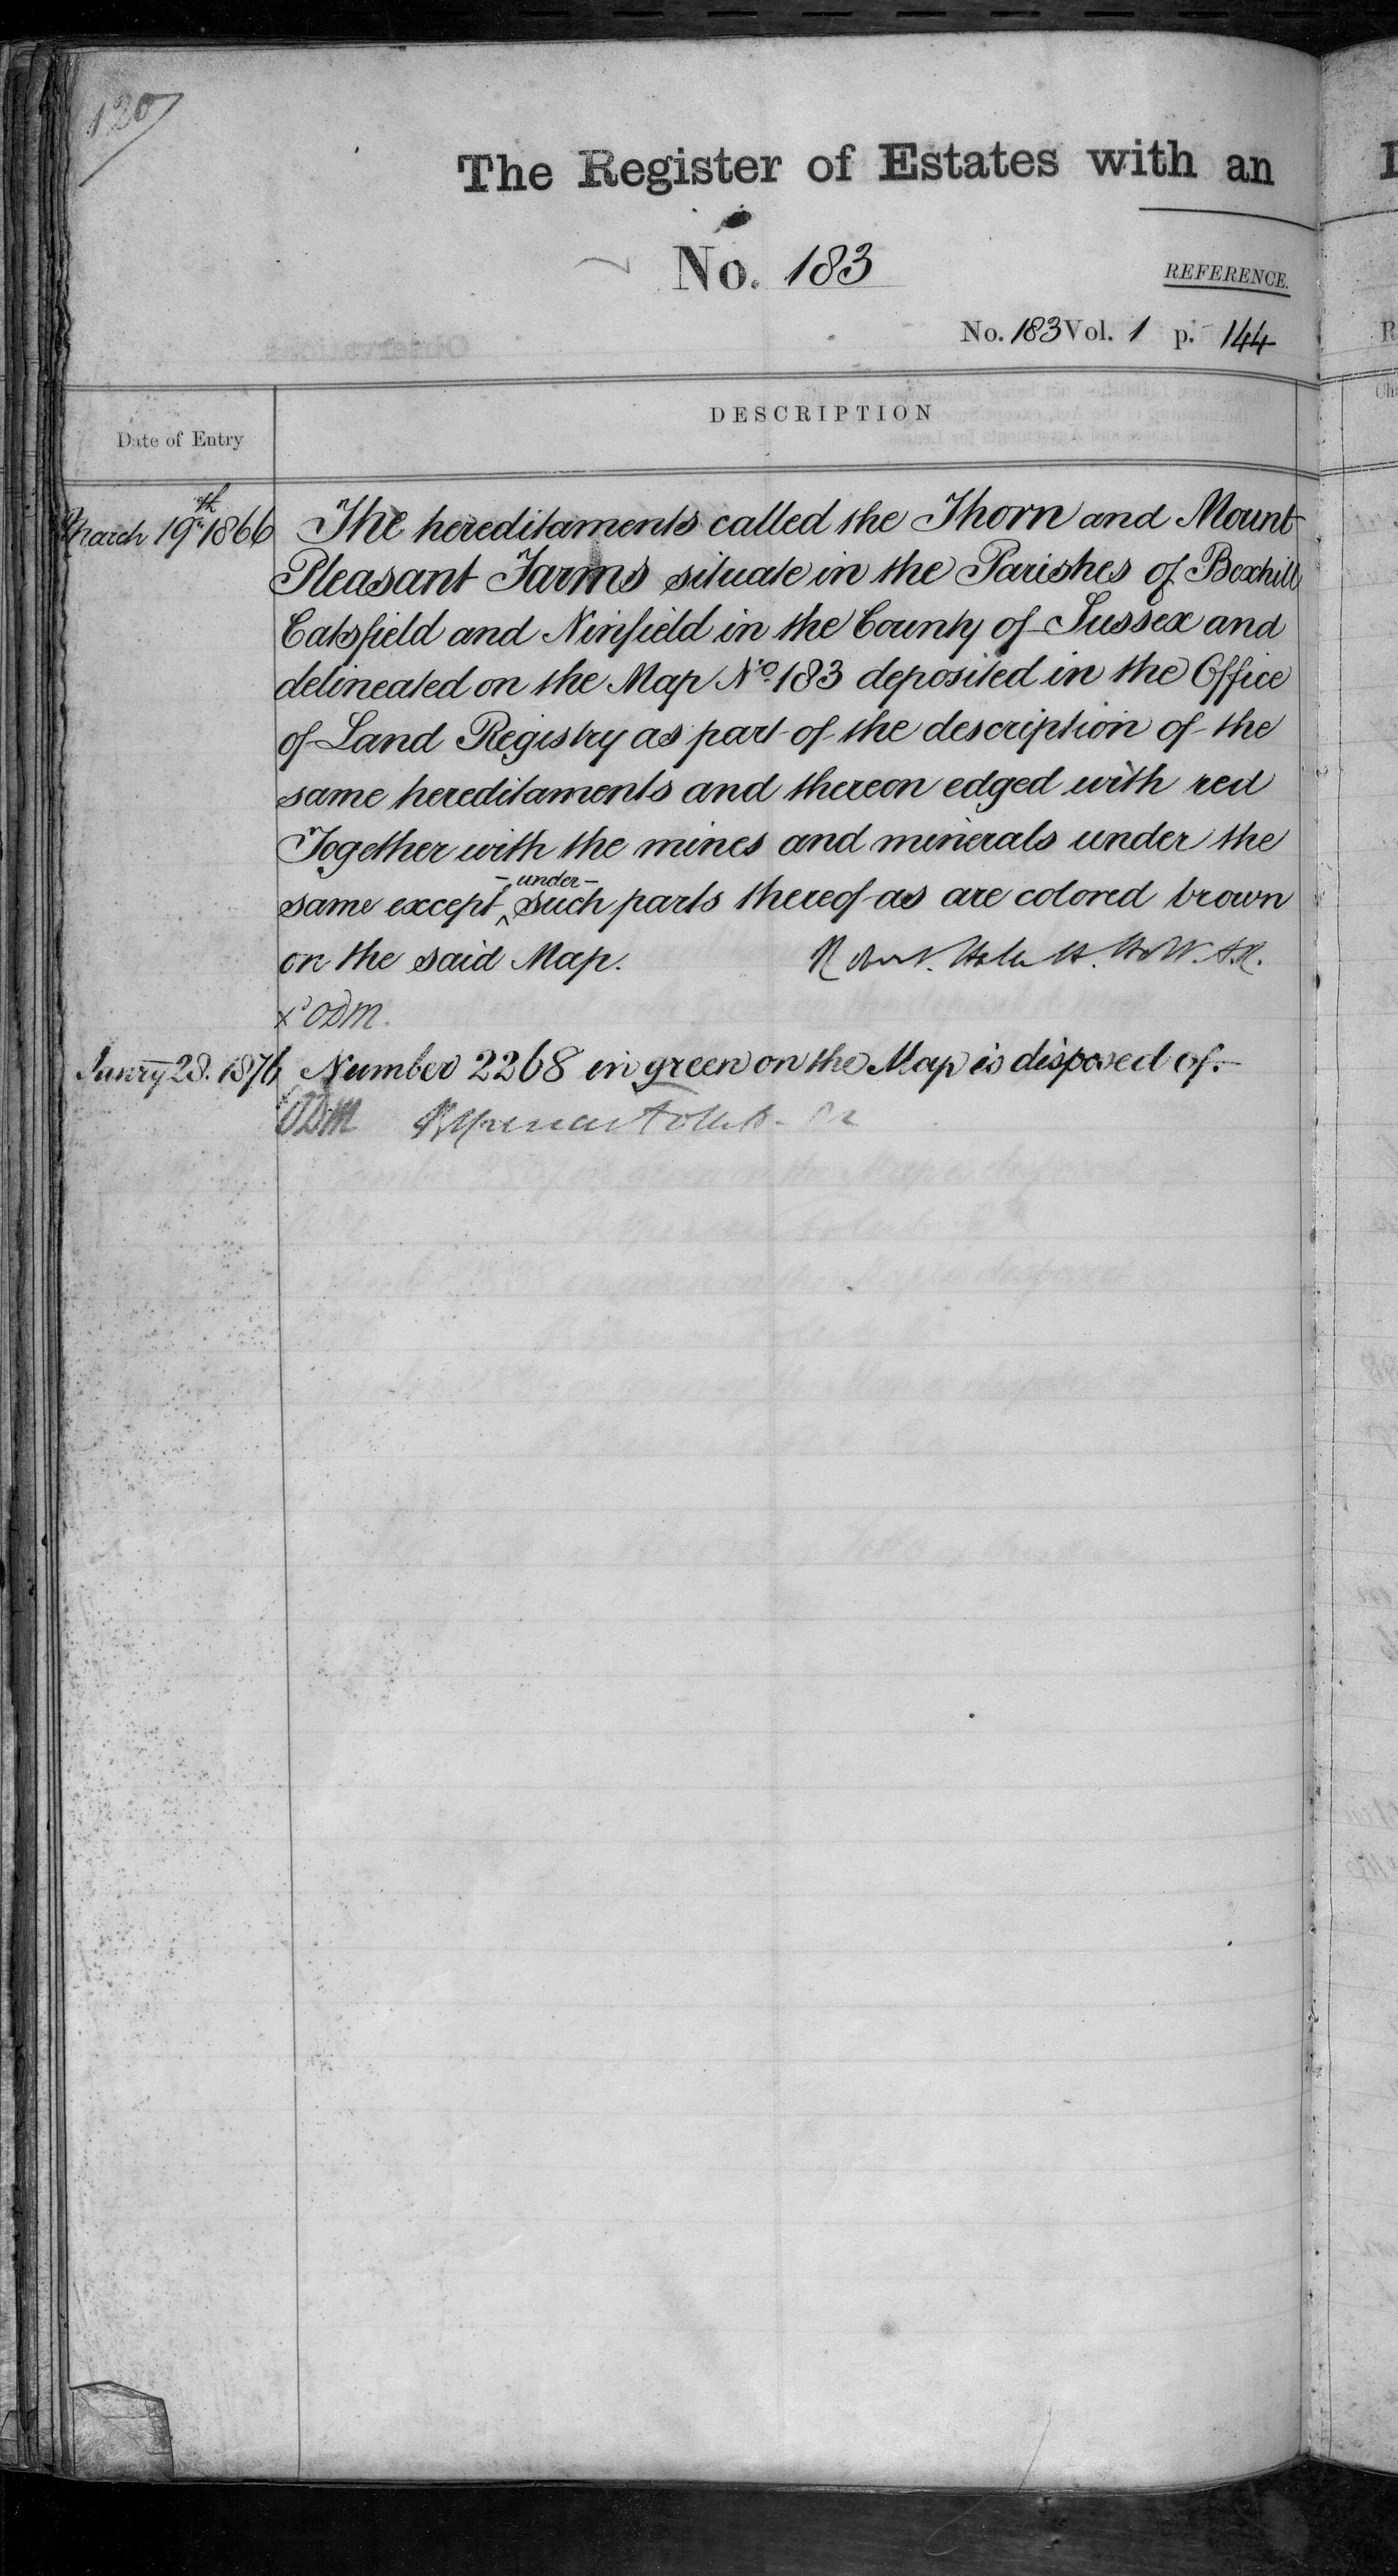 120
The Register of Estates with an
No. 183
REFERENCE.
No. 183 Vol. 1 p. 144
DESCRIPTION
Date of Entry
March 19th 1866 The hereditaments called the Thorn and Mount
Pleasant Farms situate in the Parishes of Bexhill
Catsfield and Ninfield in the County of Sussex and
delineated on the Map No. 183 deposited in the Office
of Land Registry as part of the description of the
same hereditaments and thereon edged with red
Together with the mines and minerals under the
- under -
same except such parts thereof as are colored brown
on the said Map.
x ODM.
Janry 28. 1876 Number 2268 in green on the Map is disposed of.
ODM